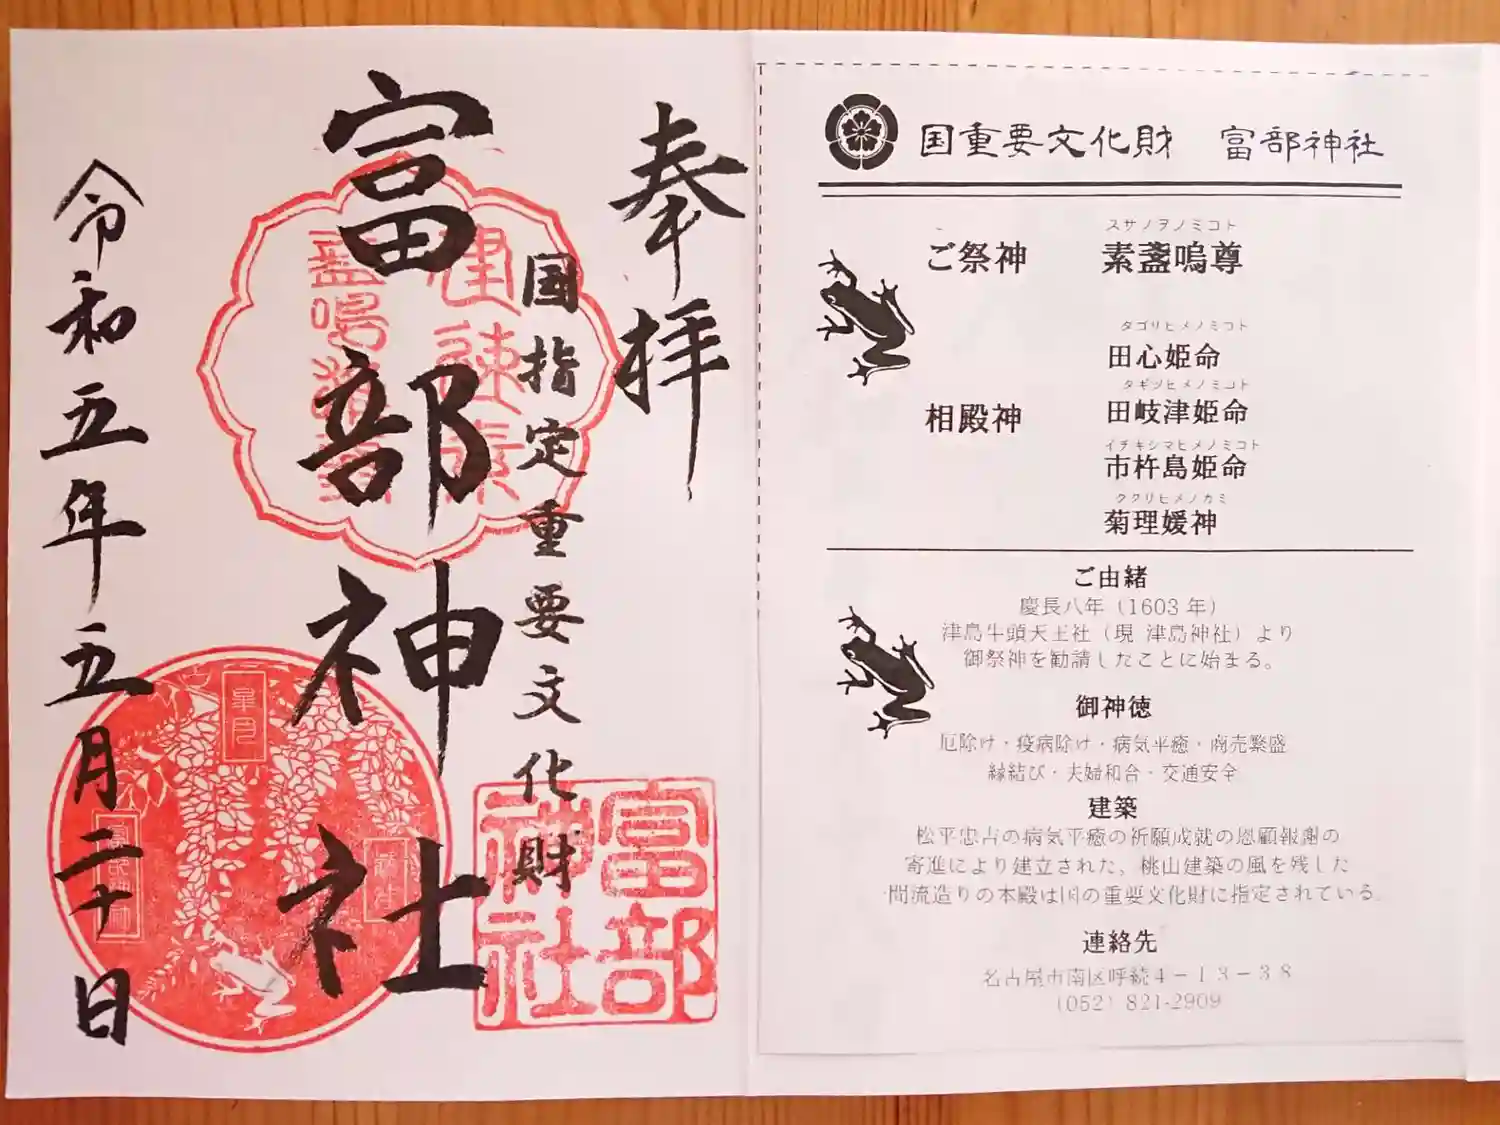 奉拝
国指定重要文化財
富部神社
令和五年五月二十日
富部
神社
皐月
富部神社
国重要文化財 富部神社
ご祭神
スサノヲノミコト
素盞嗚尊
相殿神
タゴリヒメノミコト
田心姫命
タギツヒメノミコト
田岐津姫命
イチキシマヒメノミコト
市杵島姫命
ククリヒメノカミ
菊理媛神
ご由緒
慶長八年(1603年)
津島牛頭天王社(現 津島神社)より
御祭神を勧請したことに始まる。
御神徳
厄除け・疫病除け・病気平癒・商売繁盛
縁結び・夫婦和合・交通安全
建築
松平忠吉の病気平癒の祈願成就の恩顧報謝の
寄進により建立された、桃山建築の風を残した
間流造りの本殿は国の重要文化財に指定されている。
連絡先
名古屋市南区呼続4-13-38
(052)821-2909